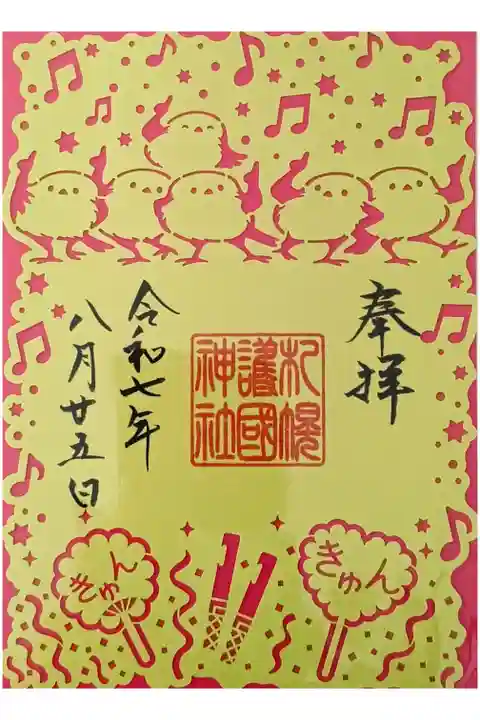 奉拝
札幌
護國
神社
令和七年
八月廿五日
きゅん
きゅん